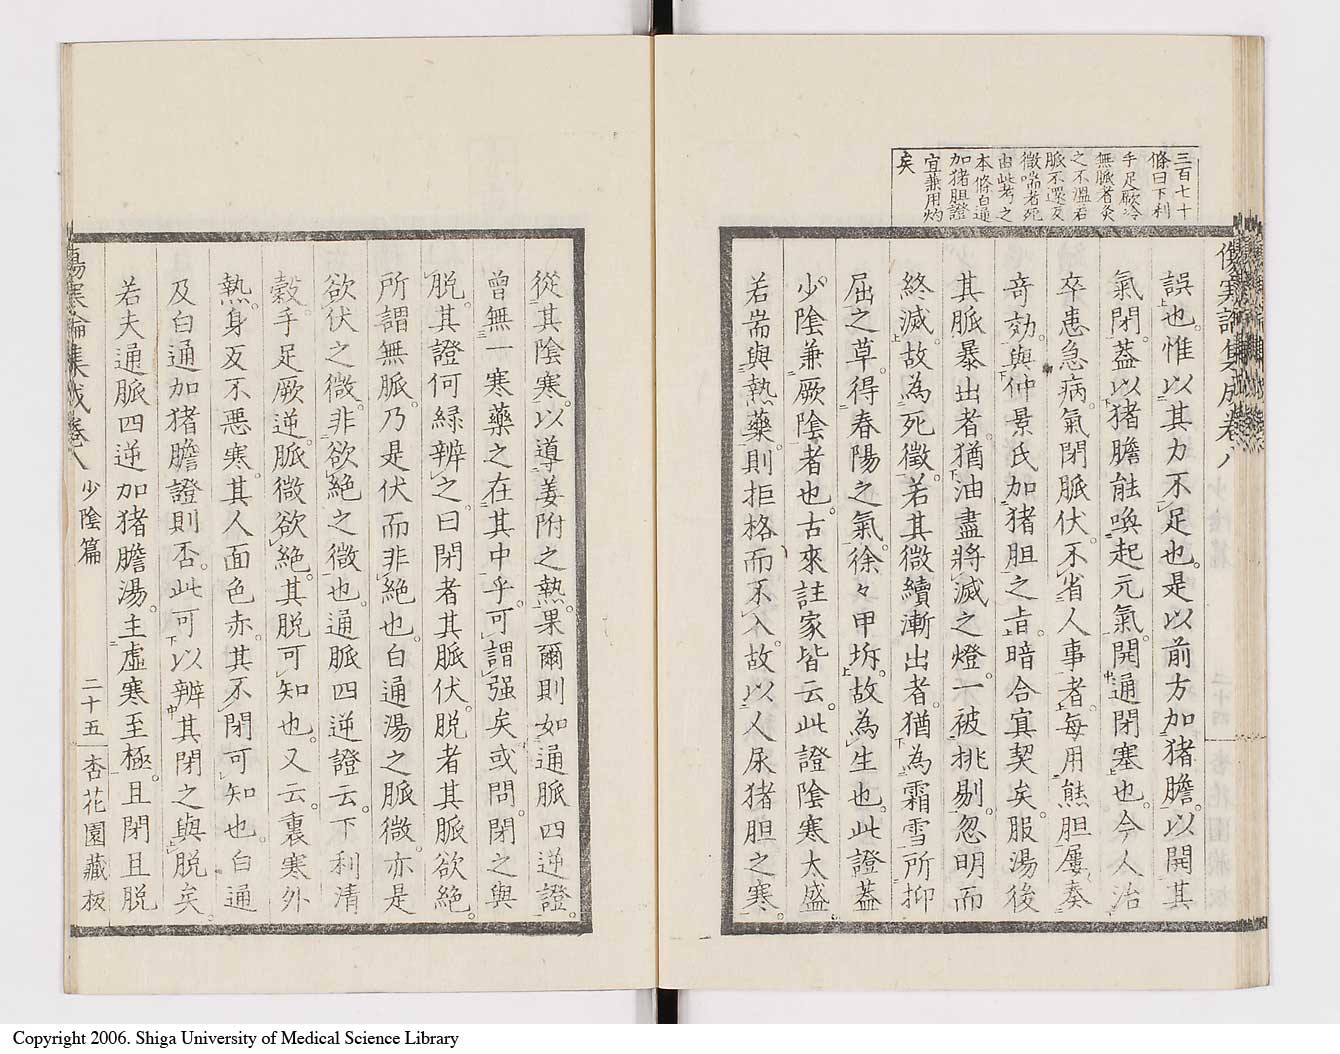 三百七十
條曰下利
手足厥冷
無脈者灸
之不溫若
脈不還反
微喘者死
由此考之
本條白通
加猪胆證
宜兼用灼
矣
傷寒論集成卷八
誤也。惟以其力不足也。是以前方加猪膽。以開其
氣閉。蓋以猪膽能喚起元氣。開通閉塞也。今人治
卒患急病。氣閉脈伏。不省人事者。每用熊胆屢奏
奇効。與仲景氏加猪胆之旨。暗合寘契矣。服湯後
其脈暴出者。猶油盡將滅之燈。一被挑剔。忽明而
終滅。故為死徵。若其微續漸出者。猶為霜雪所抑
屈之草。得春陽之氣。徐々甲坼。故為生也。此證蓋
少陰兼厥陰者也。古來註家皆云。此證陰寒太盛
若耑與熱藥。則拒格而不入。故以人尿猪胆之寒。
從其陰寒。以導姜附之熱。果爾則如通脈四逆證。
曾無一寒藥之在其中乎。可謂强矣。或問。閉之與
脫。其證何緣辨之。曰閉者其脈伏。脫者其脈欲絕。
所謂無脈。乃是伏而非絕也。白通湯之脈微。亦是
欲伏之微。非欲絕之微也。通脈四逆證云。下利清
穀。手足厥逆。脈微欲絕。其脫可知也。又云。裏寒外
熱。身反不惡寒。其人面色赤。其不閉可知也。白通
及白通加猪膽證則否。此可以辨其閉之與脫矣。
若夫通脈四逆加猪膽湯。主虛寒至極。且閉且脫
傷寒論集成卷八 少陰篇 二十五 杏花園藏板
Copyright 2006. Shiga University of Medical Science Library